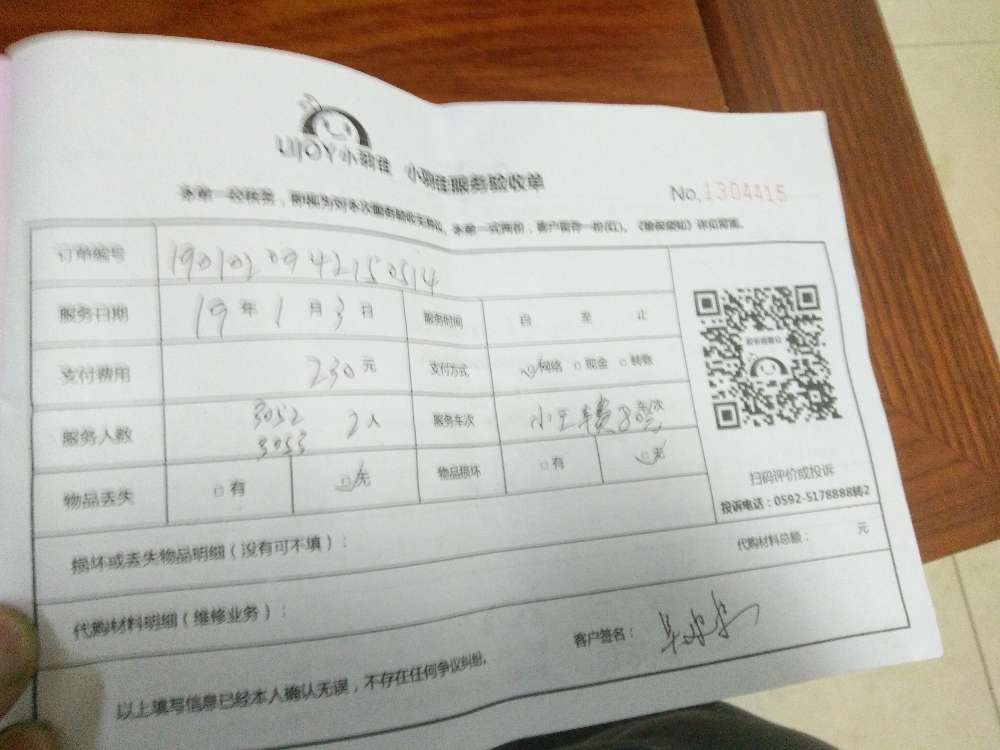 LIJOY小羽佳 小羽佳服务验收单
No.1304415
本单一经核签，即视为对本次服务验收无异议。本单一式两份，客户留存一份(红)。
订单编号 1901020942150514
服务日期 19年1月3日 服务时间 自 至 止
支付费用 230元 支付方式 网络 现金 转账
服务人数 3052 3053 2人 服务车次 车次
物品丢失 有 无 物品损坏 有 无
扫码评价或投诉
投诉电话：0592-5178888转2
损坏或丢失物品明细（没有可不填）：
代购材料总额： 元
代购材料明细（维修业务）：
客户签名：
以上填写信息已经本人确认无误，不存在任何争议纠纷。